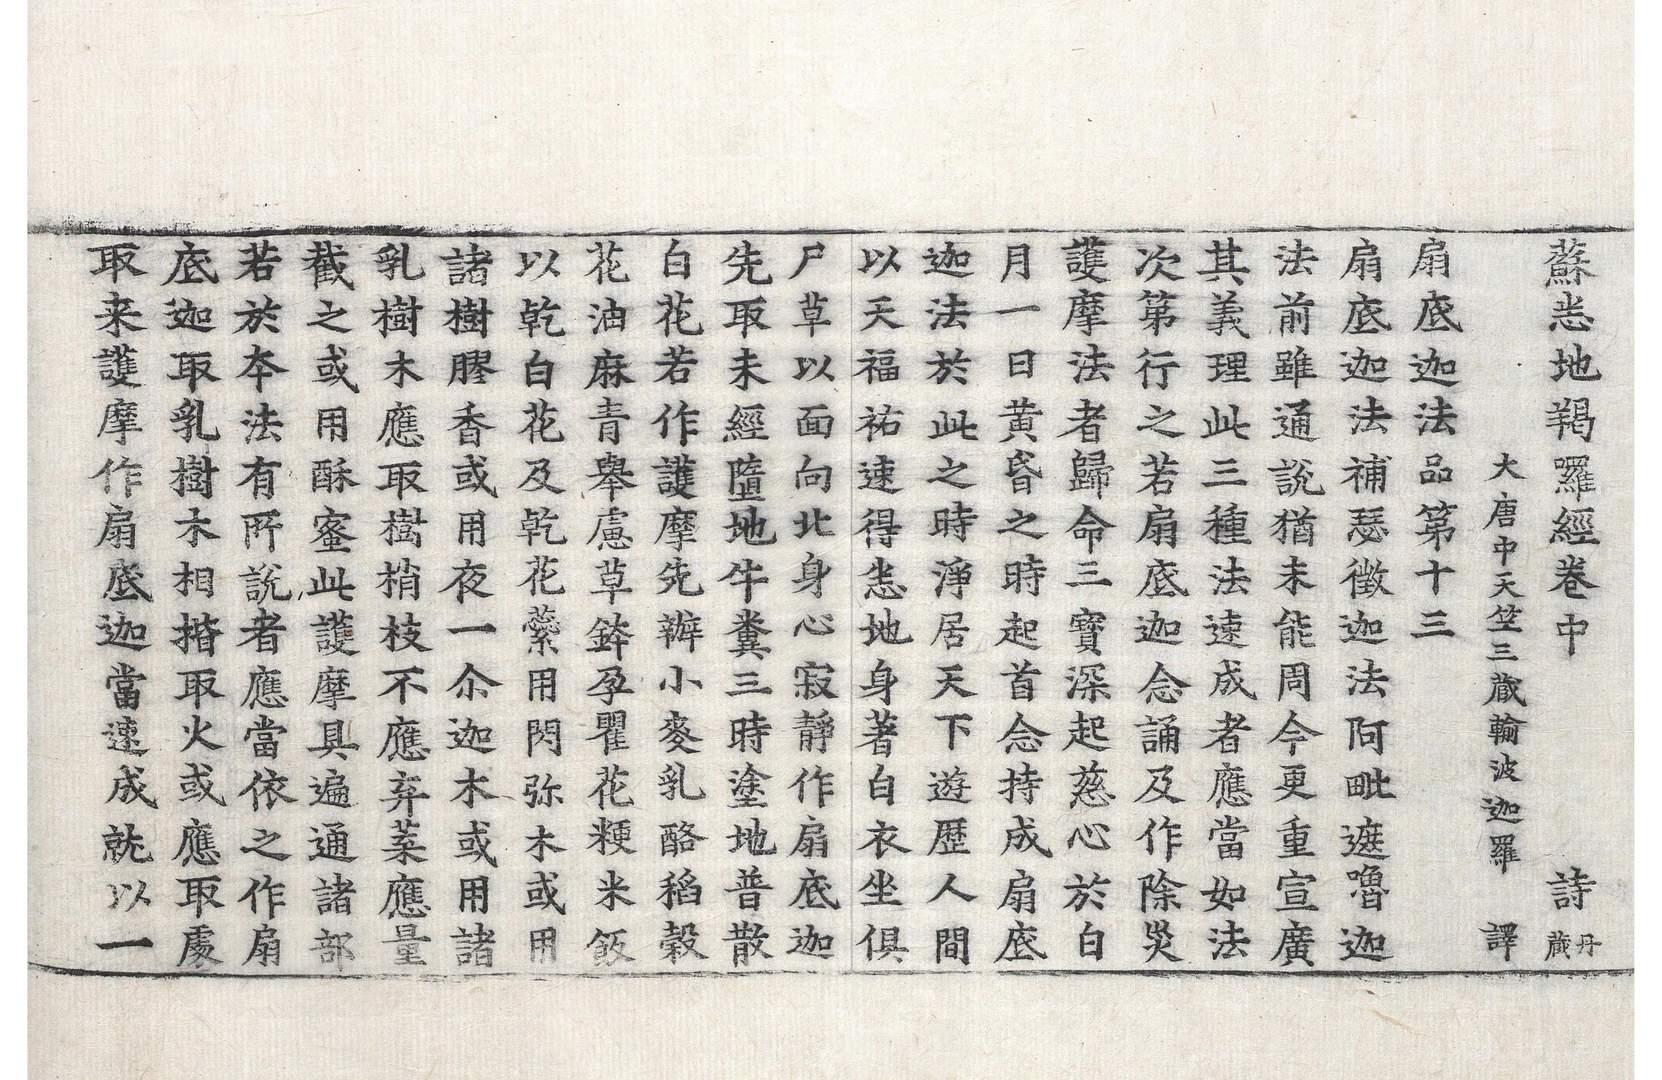 蘇悉地羯羅經卷中 詩 丹藏
大唐中天竺三藏輸波迦羅 譯
扇底迦法品第十三
扇底迦法補瑟徵迦法阿毗遮嚕迦
法前雖通說猶未能周今更重宣廣
其義理此三種法速成者應當如法
次第行之若扇底迦念誦及作除災
護摩法者歸命三寶深起慈心於白
月一日黃昏之時起首念持成扇底
迦法於此之時淨居天下遊歷人間
以天福祐速得悉地身著白衣坐俱
尸草以面向北身心寂靜作扇底迦
先取未經墮地牛糞三時塗地普散
白花若作護摩先辦小麥乳酪稻穀
花油麻青舉慮草鉢孕瞿花粳米飯
以乾白花及乾花蘂用閃弥木或用
諸樹膠香或用夜一尒迦木或用諸
乳樹木應取樹梢枝不應弃葉應量
截之或用酥蜜此護摩具遍通諸部
若於本法有所說者應當依之作扇
底迦取乳樹木相揩取火或應取處
取来護摩作扇底迦當速成就以一